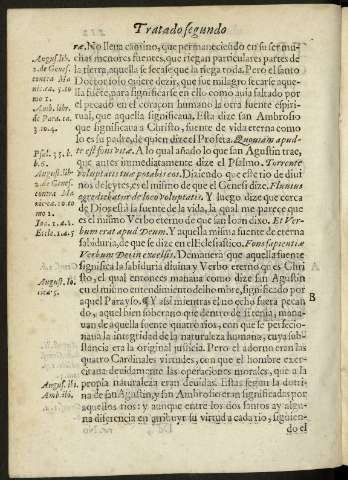 Tratado segundo
ræ. No lleua camino, que permaneciendo en su ser muchas
menores fuentes, que riegan particulares partes de
la tierra, aquella se secasse que la riega toda. Pero el santo
Doctor solo quiere dezir, que fue milagro secarse aquella
fuēte, para significarse en ello como auia faltado por
el pecado en el coraçon humano la otra fuente espiritual,
que aquella significaua. Esta dize san Ambrosio
que significaua a Christo, fuente de vida eterna como
lo es su padre, de quien dize el Profeta. Quoniam apud
te est fons vitæ. A lo qual añado lo que san Agustin trae,
que antes immediatamente dize el Psalmo. Torrente
voluptatis tuæ potabis eos. Diziendo que este rio de diuinos
deleytes, es el mismo de que el Genesi dize. Fluuius
egrediebatur de loco voluptatis. Y luego dize que cerca
de Dios està la fuente de la vida, la qual me parece que
es el mismo Verbo eterno de que san Iuan dixo. Et Verbum
erat apud Deum. Y aquella misma fuente de eterna
sabiduria, de que se dize en el Eclesiastico. Fons sapientiæ
Verbum Dei in excelsis. De manera que aquella fuente
significa la sabiduria diuina y Verbo eterno que es Christo,
el qual entonces manaua como dize san Agustin
en el mismo entendimiento del hombre, significado por
aquel Parayso. ¶ Y assi mientras el no echò fuera pecando,
aquel bien soberano que dentro de si tenia, manauan
de aquella fuente quatro rios, con que se perfecionaua
la integridad de la naturaleza humana, cuya substancia
era la original justicia. Pero el adorno eran las
quatro Cardinales virtudes, con que el hombre exercitaua
deuidamente las operaciones morales, que a la
propia naturaleza eran deuidas. Estas segun la dotrina
de san Agustin, y san Ambrosio eran significadas por
aquellos rios: y aunque entre los dos santos ay alguna
diferencia en atribuyr su virtud a cada rio, siguiendo
el
August. lib.
2. de Genes.
contra Ma
nic. ca.
mo 1.
Amb. libr.
de Para. ca.
3. to. 4.
Psal. 35.
b. 6.
August. lib.
2. de Genes.
contra Ma
mo 1.
Io. 1. a. 1.
Eccle. 1. a. 5
August.
B
August. ibi.
Amb. ibi.